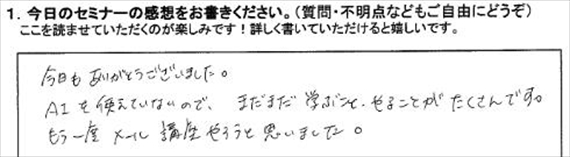 1. 今日のセミナーの感想をお書きください。（質問・不明点などもご自由にどうぞ）
ここを読ませていただくのが楽しみです！詳しく書いていただけると嬉しいです。
今日も ありがとうございました。
AIを使えていないので、まだまだ学ぶこと、やることが たくさんです。
もう一度 メール 講座 やろうと思いました。